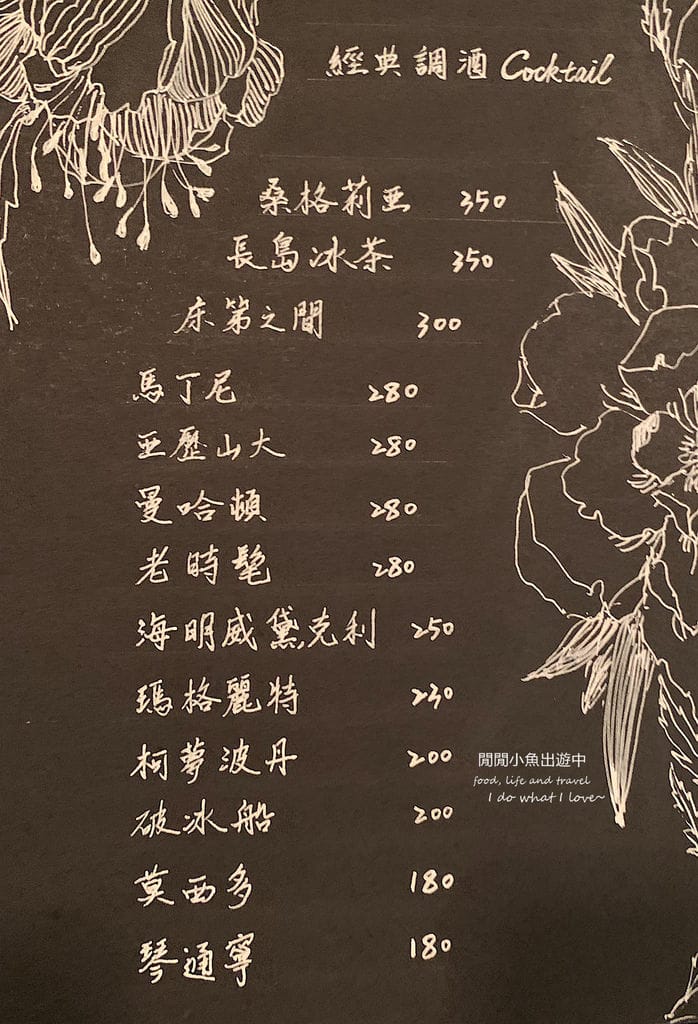 經典調酒 Cocktail
桑格莉亞 350
長島冰茶 350
床第之間 300
馬丁尼 280
亞歷山大 280
曼哈頓 280
老時髦 280
海明威黛克利 250
瑪格麗特 230
柯夢波丹 200
破冰船 200
莫西多 180
琴通寧 180
閒閒小魚出遊中
food, life and travel
I do what I love~